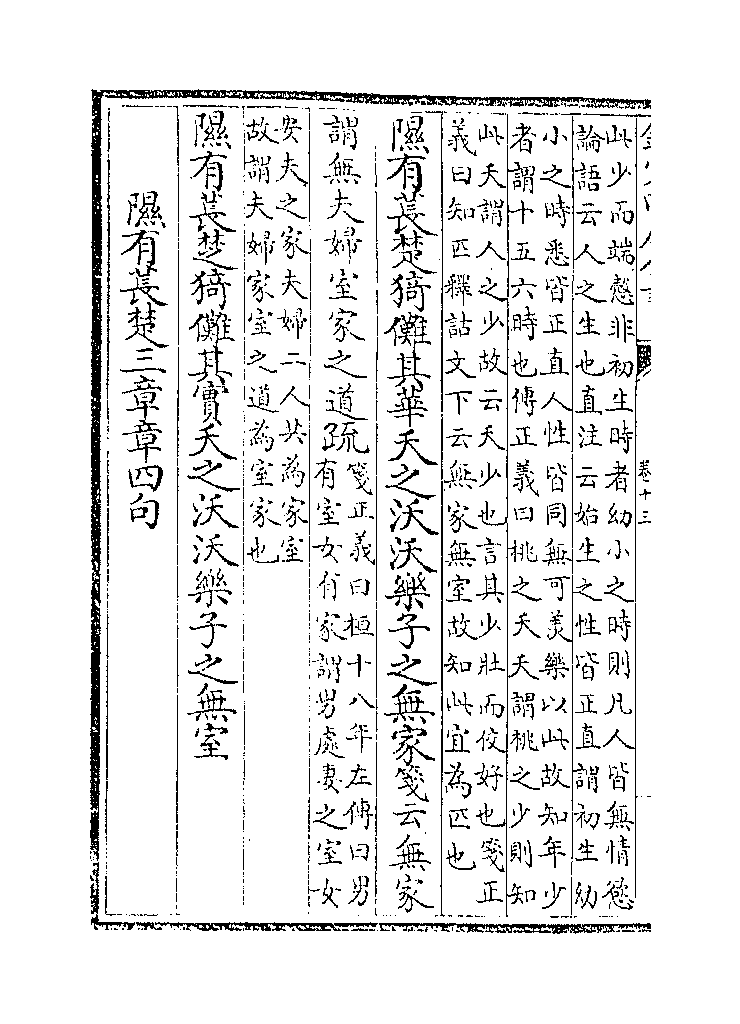 卷十三
此少而端慤非初生時者幼小之時則凡人皆無情慾
論語云人之生也直注云始生之性皆正直謂初生幼
小之時悉皆正直人性皆同無可羙樂以此故知年少
者謂十五六時也傳正義曰桃之夭夭謂桃之少則知
此夭謂人之少故云夭少也言其少壯而佼好也箋正
義曰知匹釋詁文下云無家無室故知此宜為匹也
隰有萇楚猗儺其華夭之沃沃樂子之無家箋云無家
謂無夫婦室家之道疏
箋正義曰桓十八年左傳曰男
有室女有家謂男處妻之室女
安夫之家夫婦二人共為家室
故謂夫婦家室之道為室家也
隰有萇楚猗儺其實夭之沃沃樂子之無室
隰有萇楚三章章四句